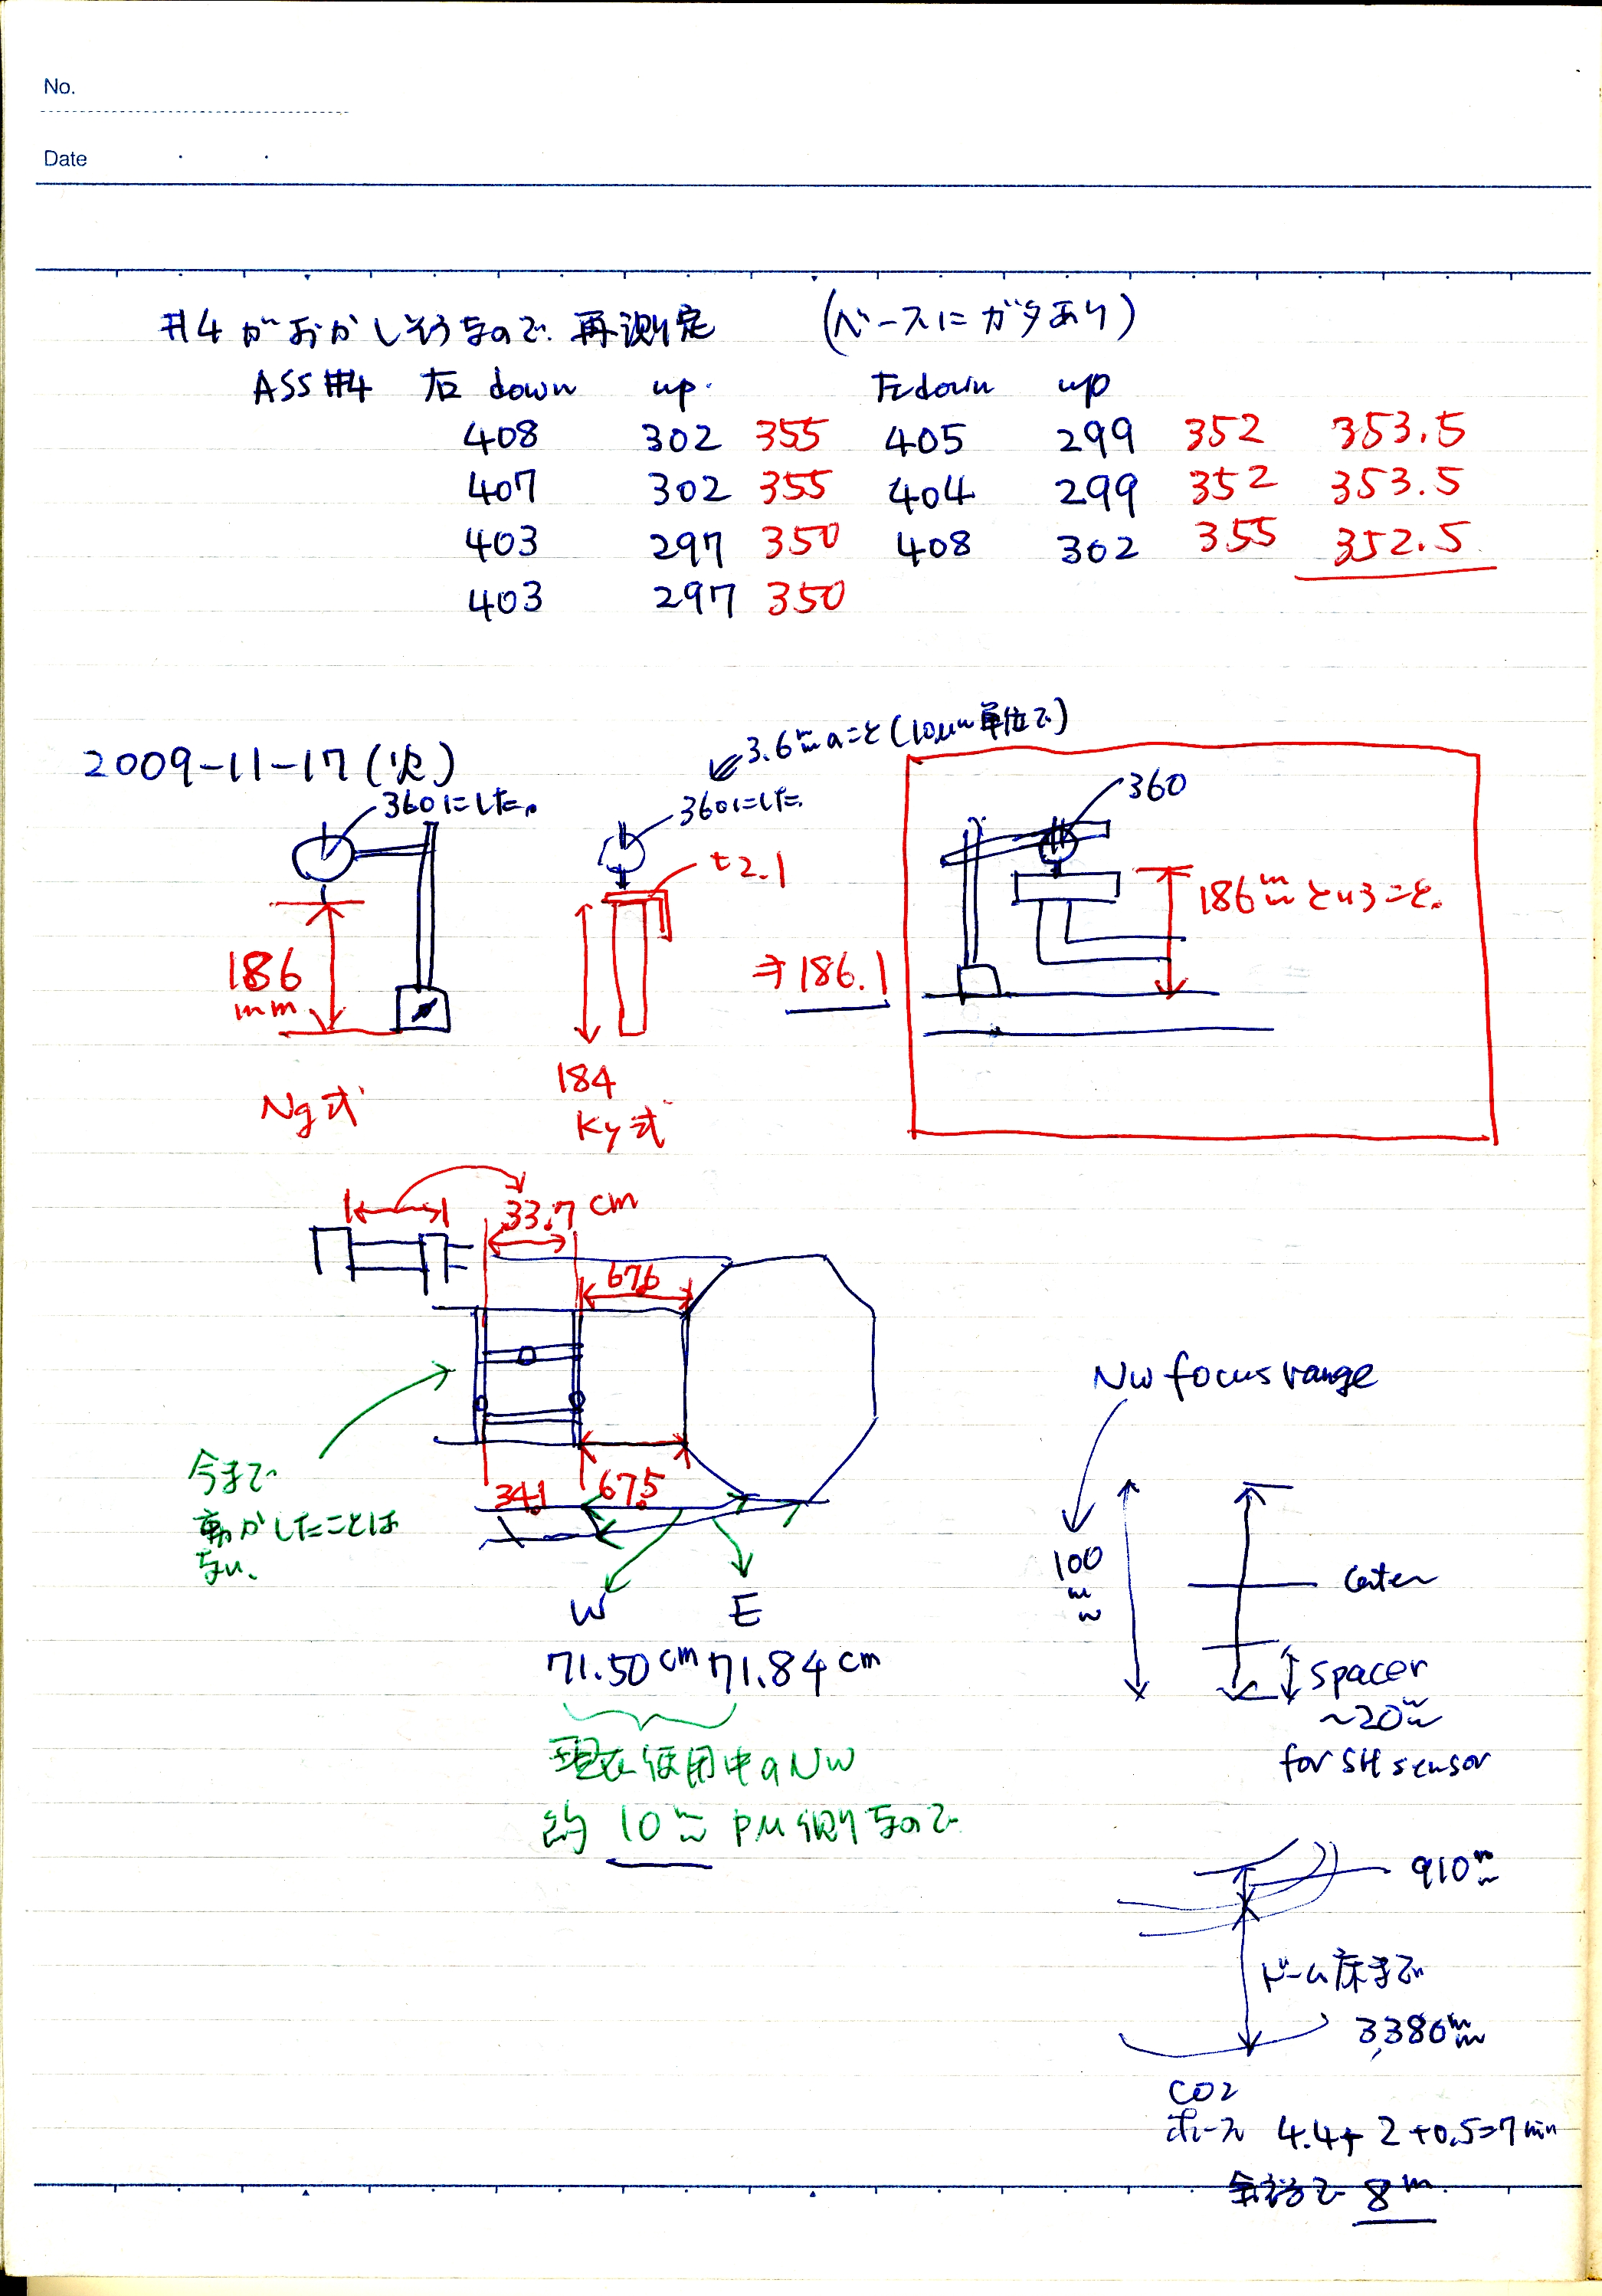 No.
Date
#4がおかしそうなので 再測定 (ベースにガタあり)
ASS #4 右 down up 左down up
408 302 355 405 299 352 353.5
407 302 355 404 299 352 353.5
403 297 350 408 302 355 352.5
403 297 350
3.6mmのこと(10μm単位で)
2009-11-17(火)
360にした。
360にした
360
t2.1
186mmということ。
186
mm
⇒186.1
184
Ng式
Ky式
33.7 cm
67.6
Nw focus range
今まで
動かしたことは
ない、
34.1 67.5
100
mm
center
W E
71.50cm 71.84cm
spacer
~20mm
for SH sensor
現在使用中のNW
約 10mm PM側なので
910mm
ドーム床まで
3,380mm
CO2
ホース 4.4+2+0.5=7min
8m